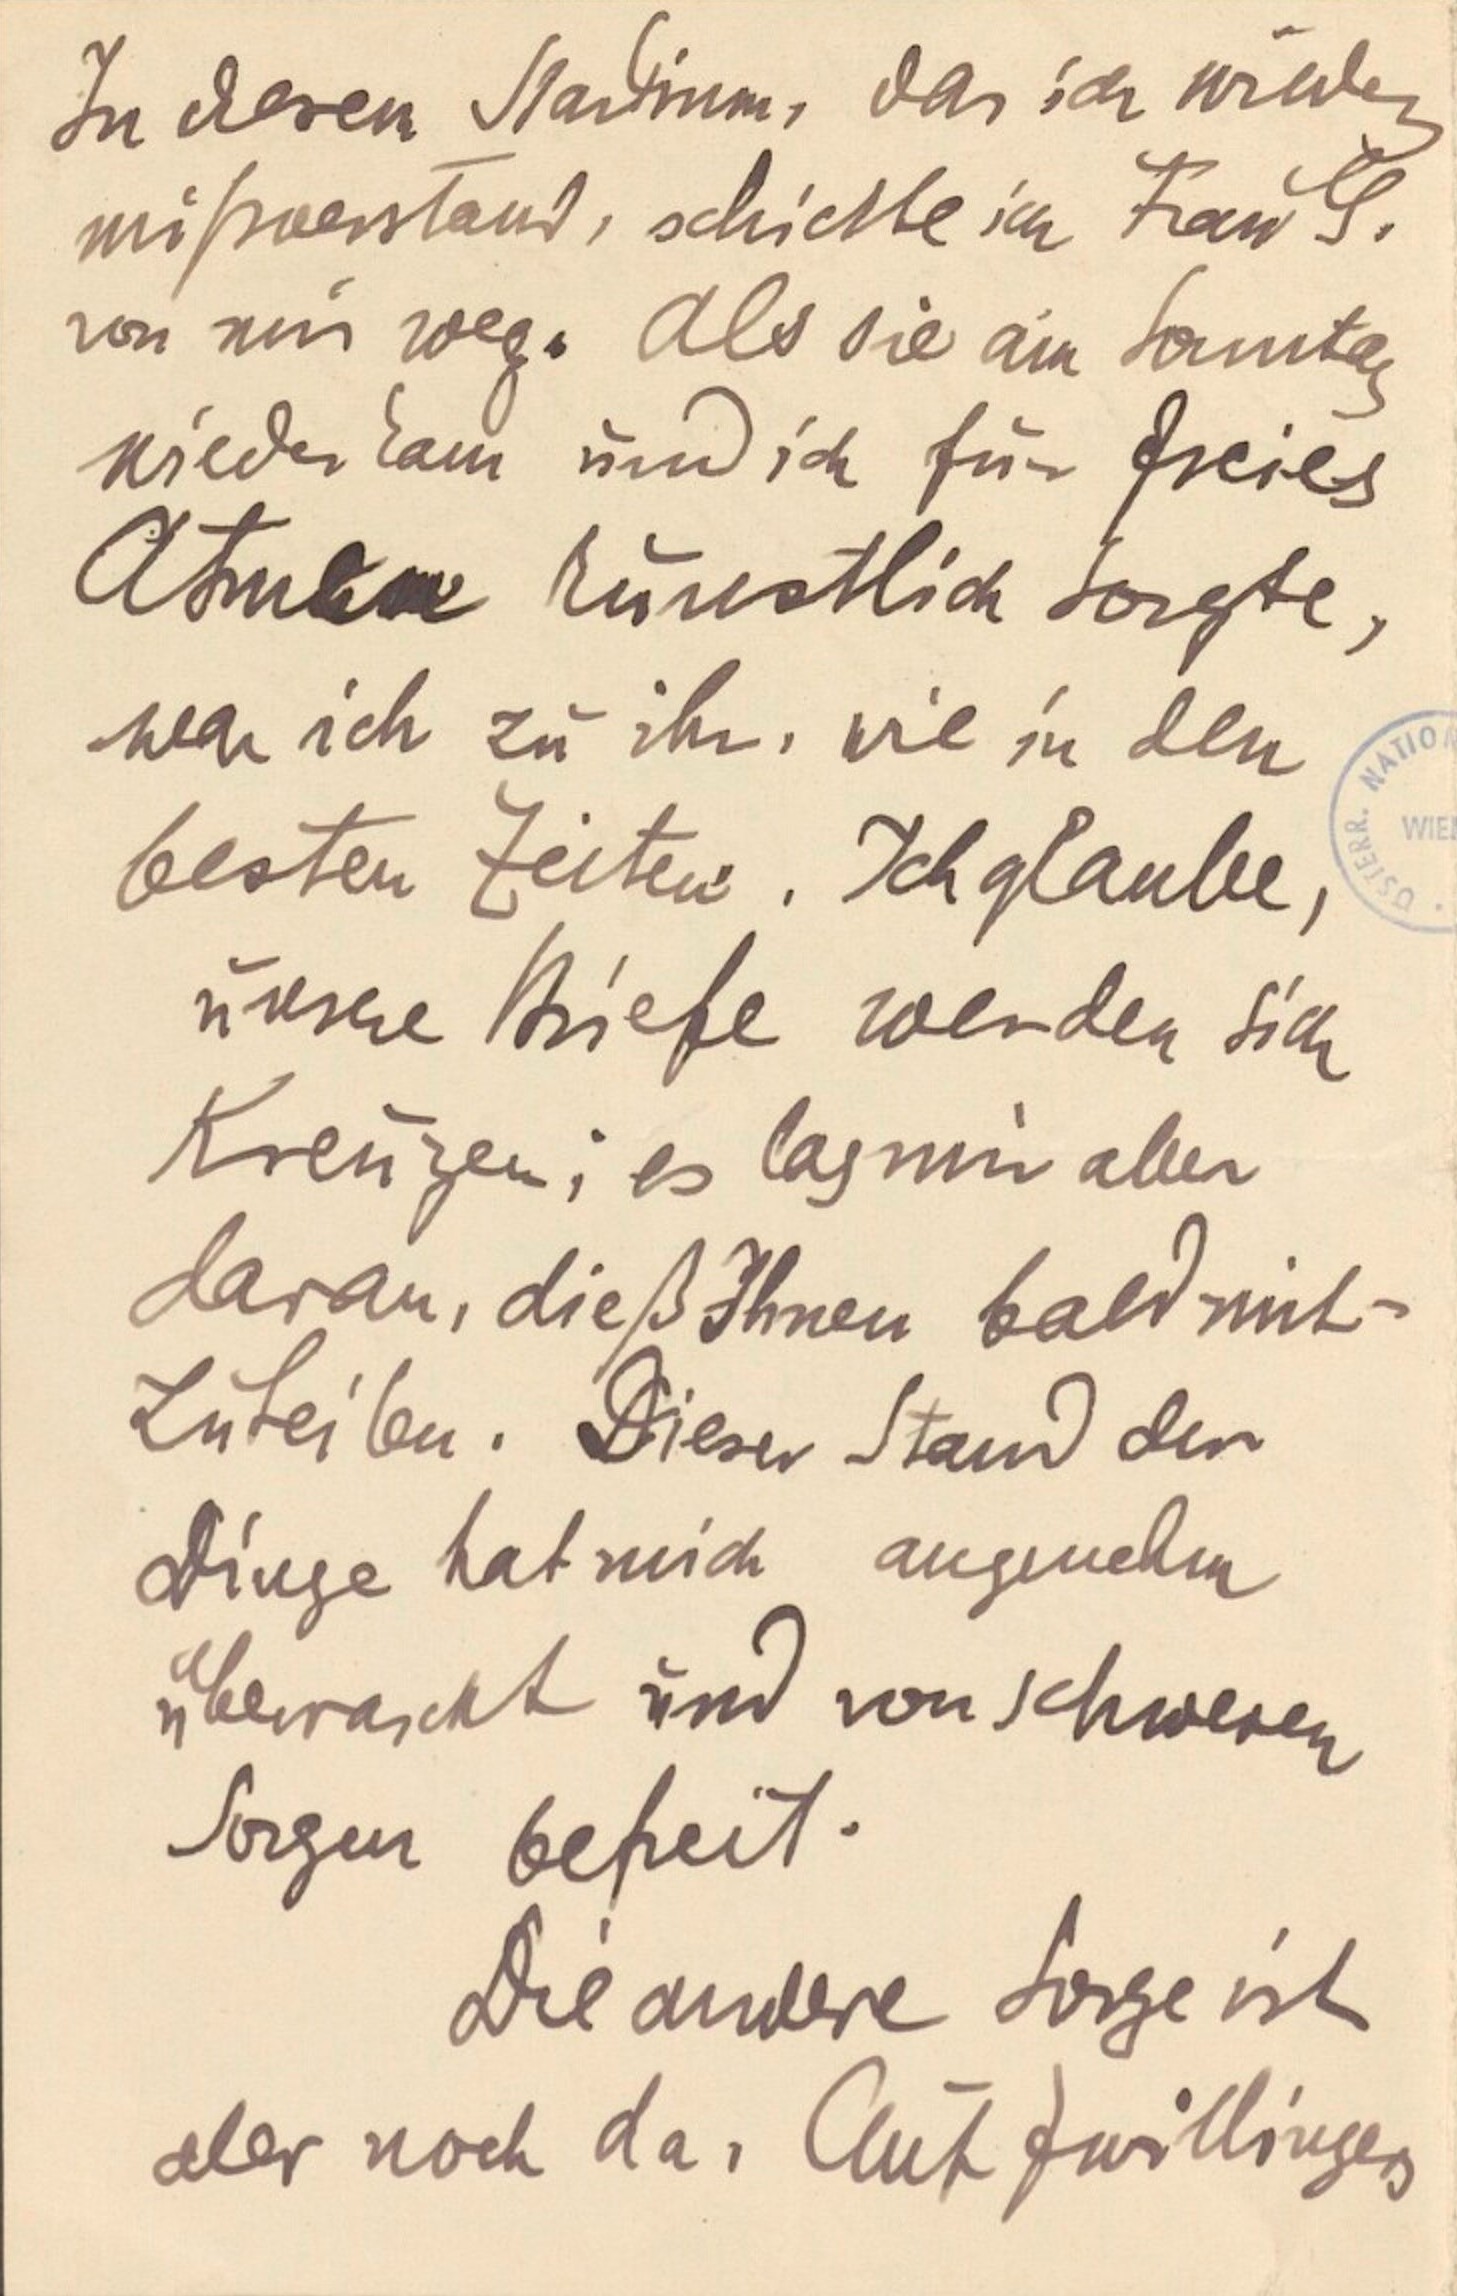 In diesem Stadium, das ich wieder
mißverstand, schickte ich Frau S.
von mir weg. Als sie am Sonntag
wiederkam und ich für freies
Atmen künstlich sorgte,
war ich zu ihr, wie in den
besten Zeiten. Ich glaube,
unsere Briefe werden sich
Kreuzen; es lag mir aber
daran, dieß Ihnen bald mit-
zuteilen. Dieser Stand der
Dinge hat mich angenehm
überrascht und von schweren
Sorgen befreit.
Die andere Sorge ist
aber noch da. Auf Zwillinge
ÖSTERR. NATIO
WIEN